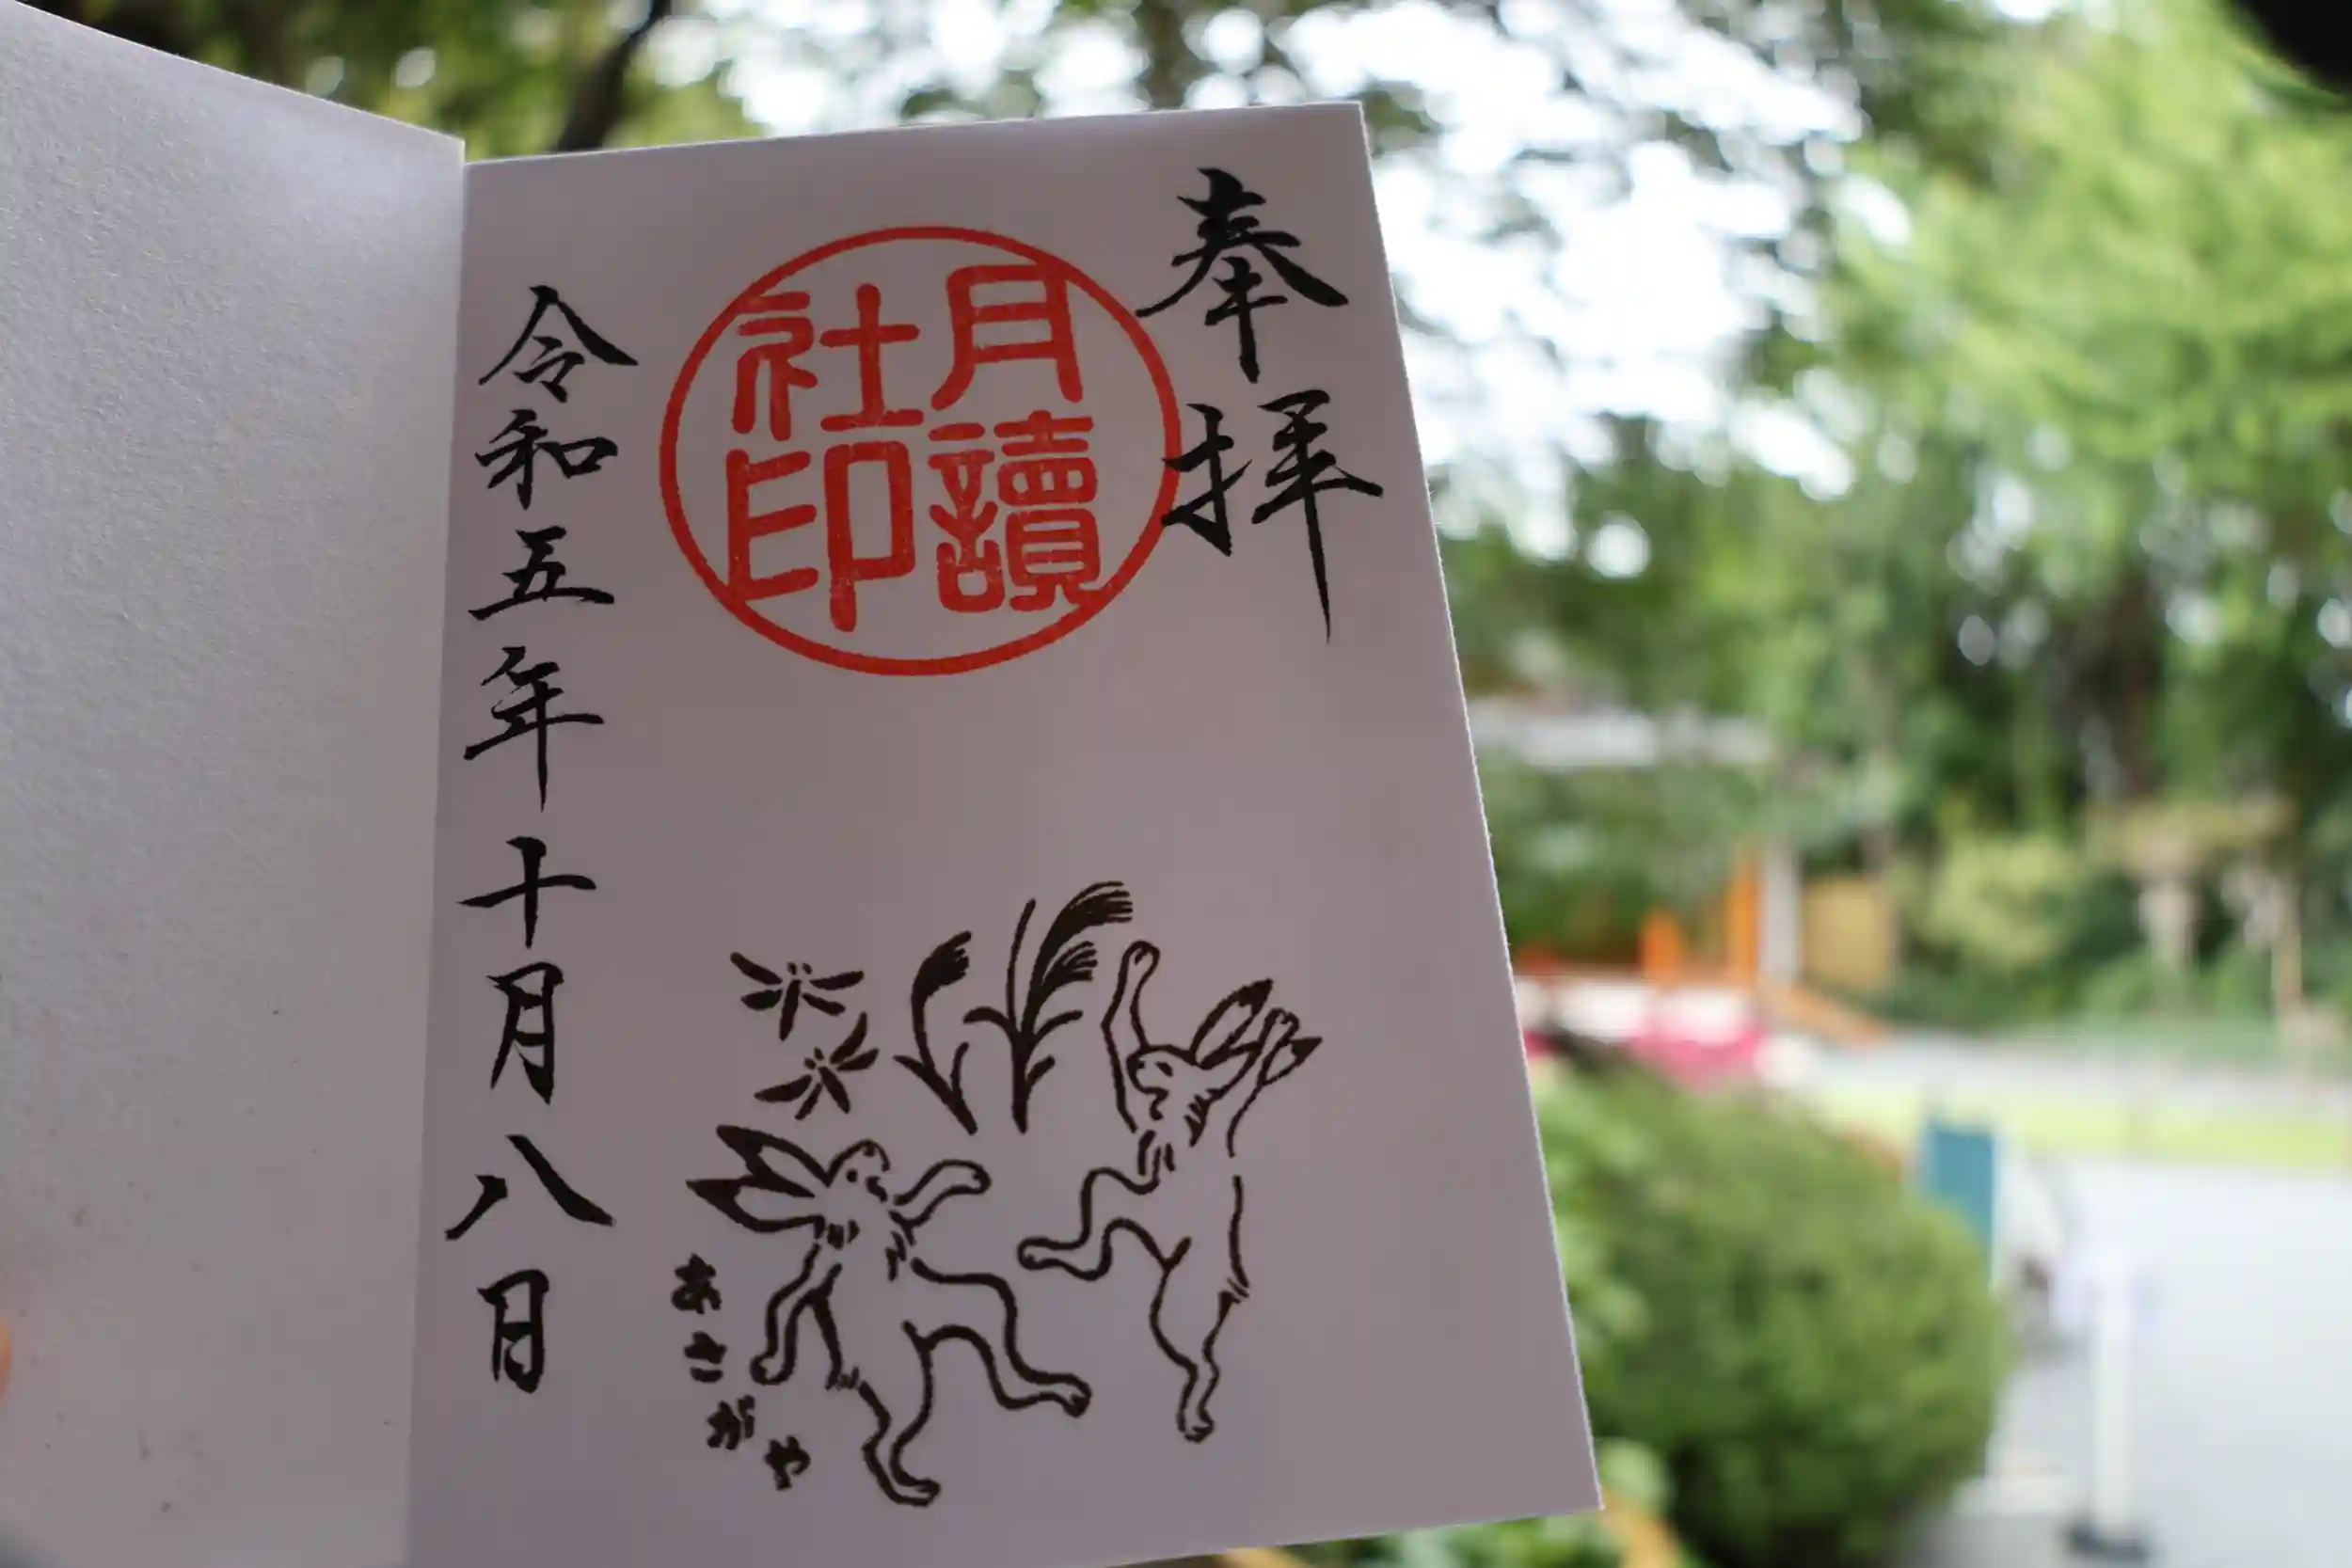 奉拝
月讀
社印
あさがや
令和五年十月八日